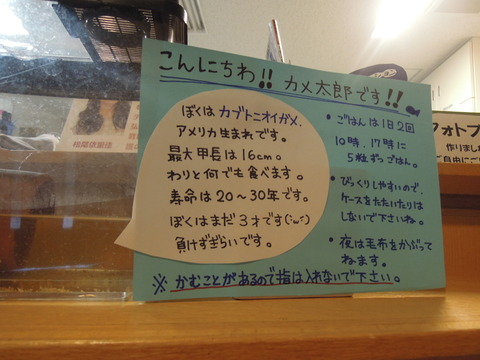 こんにちわ!! カメ太郎です!!
ぼくは カブトニオイガメ.
アメリカ生まれです。
最大甲長は16cm。
わりと何でも食べます。
寿命は20~30年です。
ぼくはまだ3才です(˙ω˙)
負けずぎらいです。
• ごはんは1日2回
10時、17時に
5粒ずつごはん。
• びっくりしやすいので、
ケースをたたいたりは
しないで下さいね。
• 夜は毛布をかぶって
ねます。
※ かむことがあるので指は入れないで下さい。
フォトブ
作りました
ご自由にご